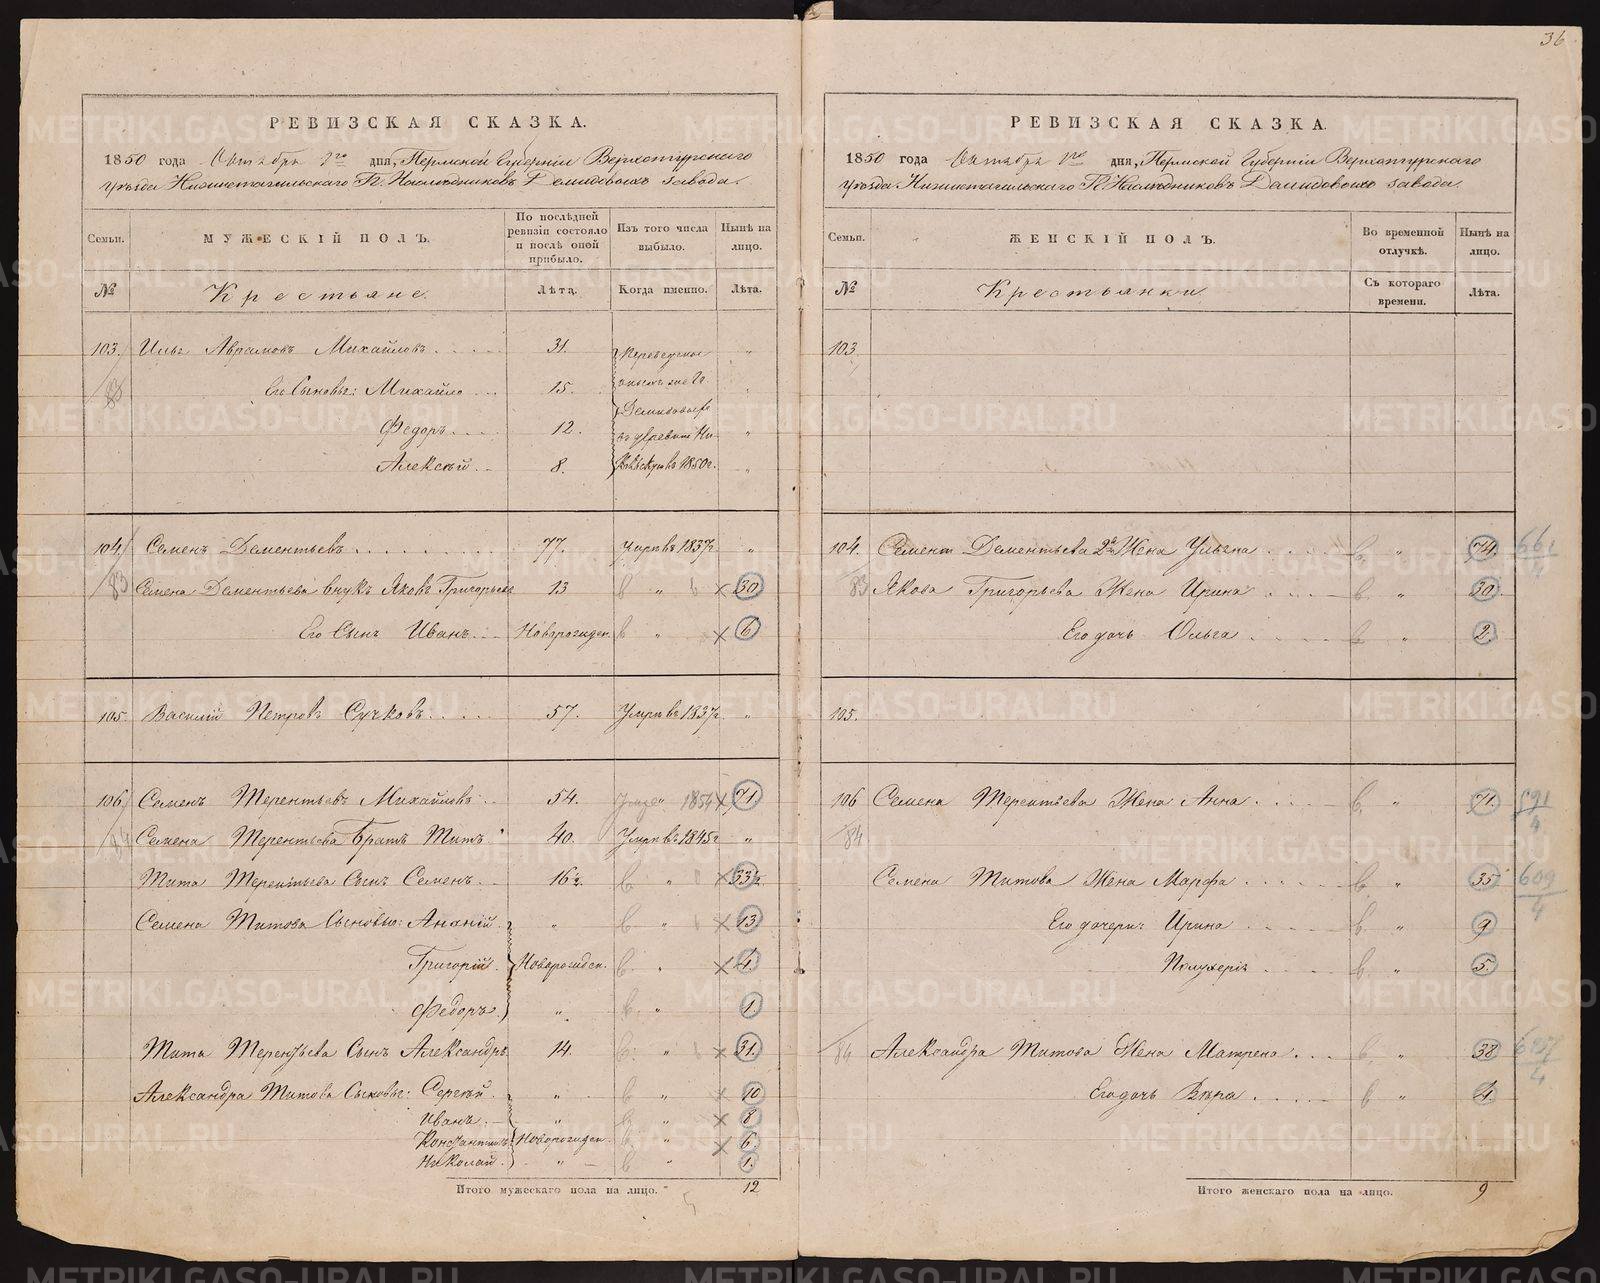 36
РЕВИЗСКАЯ СКАЗКА.
1850 года Октября 1го дня, Пермской Губерніи Верхотурскаго
уѣзда Нижнетагильскаго Гг. Наслѣдниковъ Демидовыхъ завода.
Семьи. МУЖЕСКІЙ ПОЛЪ. По послѣдней ревизіи состояло и послѣ оной прибыло. Изъ того числа выбыло. Нынѣ на лицо.
№ Крестьяне. Лѣта. Когда именно. Лѣта.
103. Илья Аврамовъ Михайловъ 31. "
85 Его Сыновья: Михайло 15. "
Федоръ 12. Демидовыхъ "
Алексѣй 8. 1850г. "
104. Семенъ Дементьевъ 77. Умръ въ 1837г. "
83 Семена Дементьева внукъ Яковъ Григорьевъ 13 в " 30
Его Сынъ Иванъ Новорожден. в " 6
105. Василій Петровъ Сучковъ 57. Умръ въ 1837г. "
106. Семенъ Терентьевъ Михайловъ 54. 1854 71
84 Семена Терентьева Братъ Титъ 40. Умръ въ 1845г "
Тита Терентьева Сынъ Семенъ 16½ в " 33½
Семена Титова Сыновья: Ананій " в " 13
Григорій Новорожден. в. " 4
Федоръ " в. " 1.
Тита Терентьева Сынъ Александръ 14. в. " 31.
Александра Титова Сыновья: Сергѣй " в " 10
Иванъ " в " 8
Константинъ Новорожден. в " 6
Николай " в " 1.
Итого мужескаго пола на лицо. 12
РЕВИЗСКАЯ СКАЗКА.
1850 года Октября 1го дня, Пермской Губерніи Верхотурскаго
уѣзда Нижнетагильскаго Гг Наслѣдниковъ Демидовыхъ завода.
Семьи. ЖЕНСКІЙ ПОЛЪ. Во временной отлучкѣ. Нынѣ на лицо.
№ Крестьянки Съ котораго времени. Лѣта.
103.
104. Семена Дементьева 2я Жена Ульяна в. " 74. 661/4
83 Якова Григорьева Жена Ирина в. " 30.
Его дочь Ольга в " 2.
105.
106 Семена Терентьева Жена Анна в. " 71. 591/4
84
Семена Титова Жена Марфа в. " 35 609/4
Его дочери: Ирина в. " 9
Полухерія в. " 5.
84 Александра Титова Жена Матрена в. " 38
Его дочь Вѣра в " 4.
Итого женскаго пола на лицо. 9
METRIKI.GASO-URAL.RU